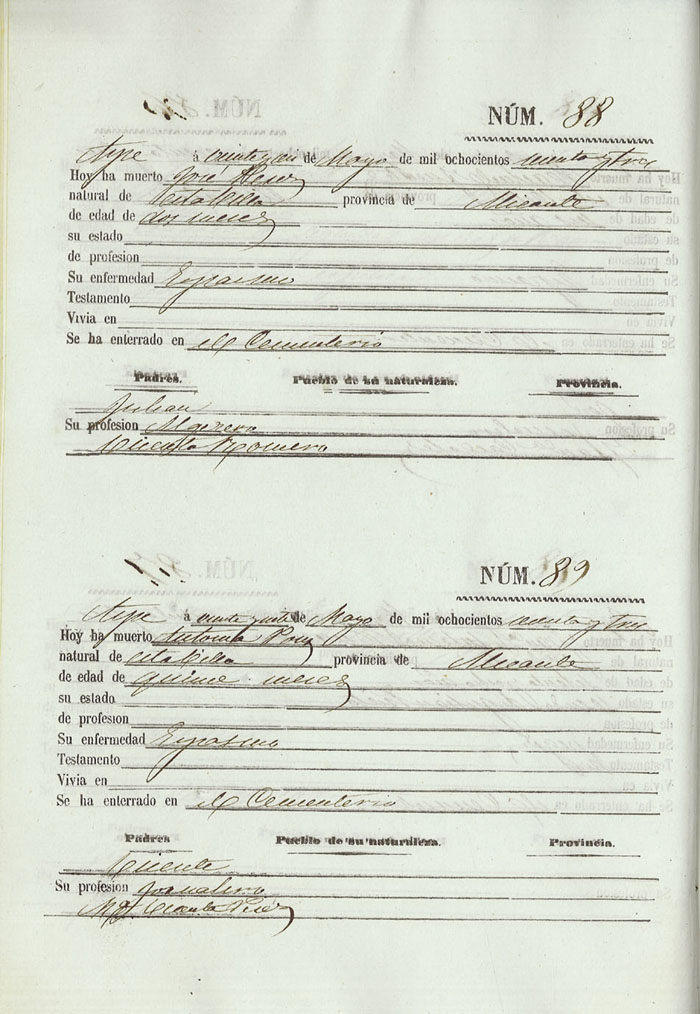 NÚM. 88
Aspe á veinte y un de Mayo de mil ochocientos sesenta y tres
Hoy ha muerto José Perez
natural de esta Villa provincia de Alicante
de edad de dos meses
su estado
de profesion
Su enfermedad Espasmo
Testamento
Vivia en
Se ha enterrado en el Cementerio
Padres. Pueblo de su naturaleza. Provincia.
Julian
Su profesion
Romero
NÚM. 89
Aspe á veinte y siete de Mayo de mil ochocientos sesenta y tres
Hoy ha muerto Antonia
natural de esta Villa provincia de Alicante
de edad de quince meses
su estado
de profesion
Su enfermedad Espasmo
Testamento
Vivia en
Se ha enterrado en el Cementerio
Padres Pueblo de su naturaleza. Provincia.
Vicente
Su profesion Jornalero
Vicenta Perez